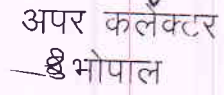 अपर कलेक्टर
भोपाल